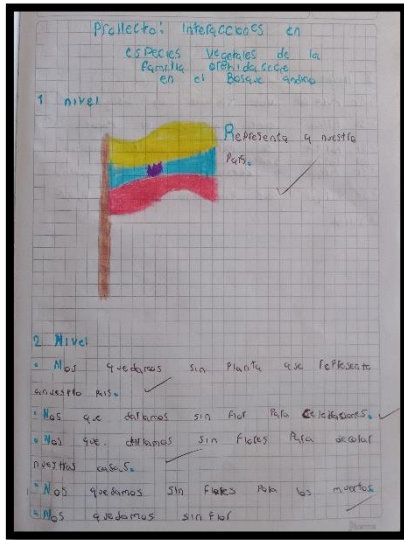 Prollecto: Interacciones en
especies vegetales de la
familia orchidaceae
en el Bosque andino
1 nivel
Representa a nuestro
País.
2 Nivel
• Nos quedamos sin Planta que rePresente
anuestro Pais.
• Nos que dallamos sin Flor Para Celedaciones.
• Nos que dallamos sin Flores Para decolar
nuestras casas.
• Nos quedamos sin Flores Para los muertos
• Nos quedamos sin Flor